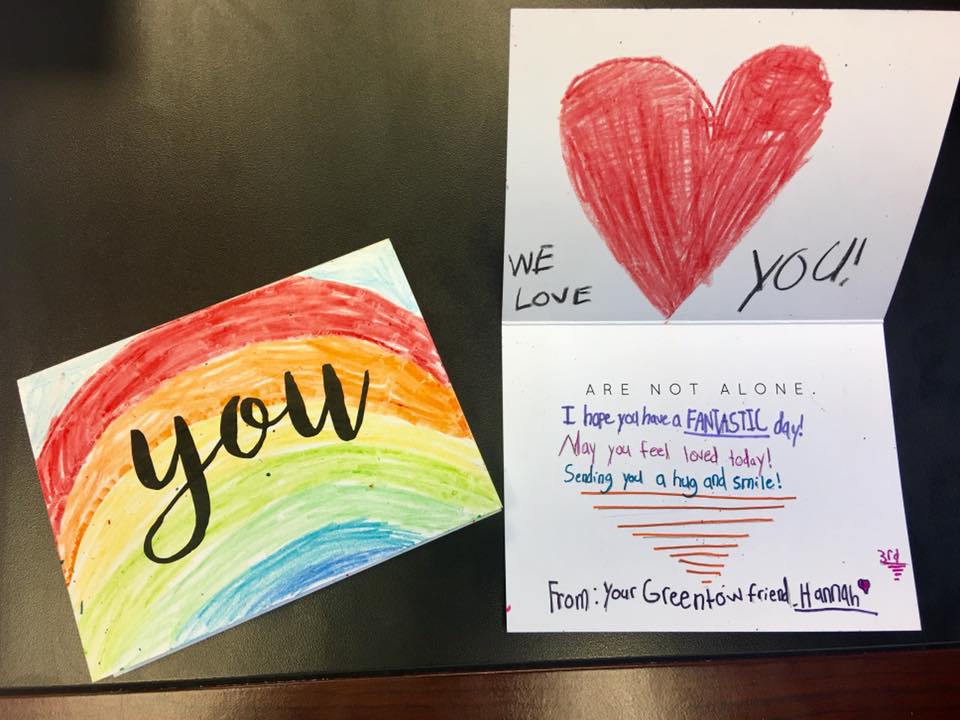 you
WE
LOVE
YOU!
ARE NOT ALONE.
I hope you have a FANTASTIC day!
May you feel loved today!
Sending you a hug and smile!
3rd
From: Your Greentow friend, Hannah